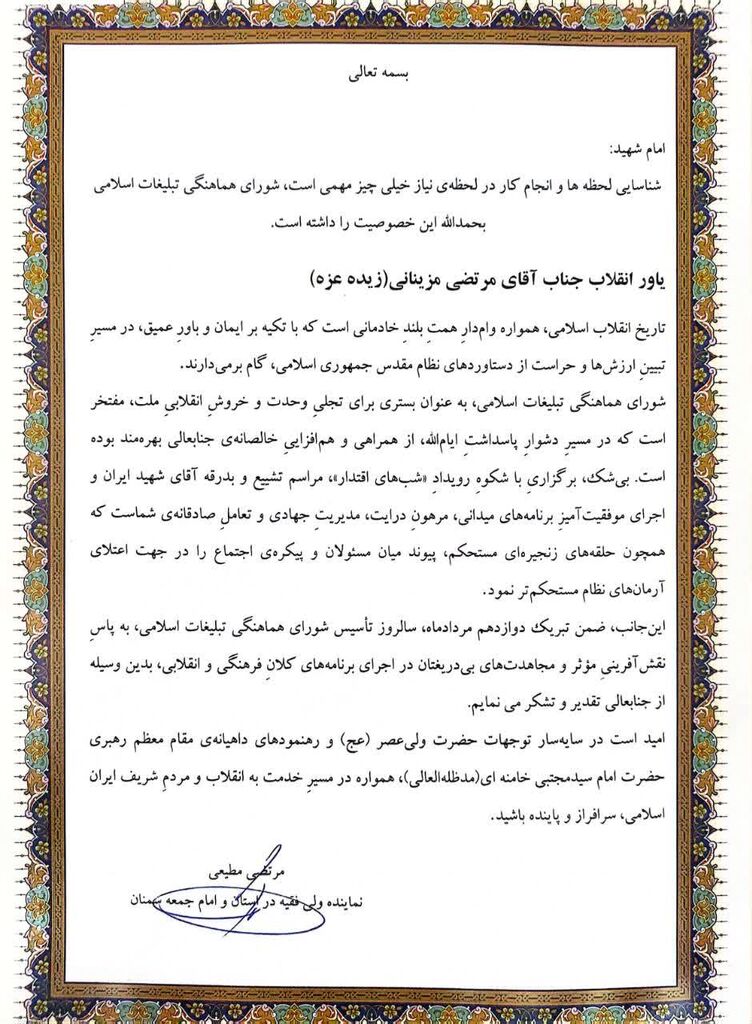 بسمه تعالی
امام شهید:
شناسایی لحظه ها و انجام کار در لحظه‌ی نیاز خیلی چیز مهمی است، شورای هماهنگی تبلیغات اسلامی
بحمدالله این خصوصیت را داشته است.
یاور انقلاب جناب آقای مرتضی مزینانی(زیده عزه)
تاریخ انقلاب اسلامی، همواره وام‌دارِ همتِ بلندِ خادمانی است که با تکیه بر ایمان و باورِ عمیق، در مسیرِ
تبیینِ ارزش‌ها و حراست از دستاوردهای نظام مقدس جمهوری اسلامی، گام برمی‌دارند.
شورای هماهنگی تبلیغات اسلامی، به عنوان بستری برای تجلیِ وحدت و خروشِ انقلابیِ ملت، مفتخر
است که در مسیرِ دشوارِ پاسداشتِ ایام‌الله، از همراهی و هم‌افزاییِ خالصانه‌ی جنابعالی بهره‌مند بوده
است. بی‌شک، برگزاریِ با شکوهِ رویدادِ «شب‌های اقتدار»، مراسم تشییع و بدرقه آقای شهید ایران و
اجرای موفقیت‌آمیزِ برنامه‌های میدانی، مرهونِ درایت، مدیریتِ جهادی و تعاملِ صادقانه‌ی شماست که
همچون حلقه‌های زنجیره‌ای مستحکم، پیوند میان مسئولان و پیکره‌ی اجتماع را در جهت اعتلای
آرمان‌های نظام مستحکم‌تر نمود.
این‌جانب، ضمن تبریک دوازدهم مردادماه، سالروز تأسیس شورای هماهنگی تبلیغات اسلامی، به پاسِ
نقش‌آفرینیِ مؤثر و مجاهدت‌های بی‌دریغتان در اجرای برنامه‌های کلانِ فرهنگی و انقلابی، بدین وسیله
از جنابعالی تقدیر و تشکر می نمایم.
امید است در سایه‌سار توجهات حضرت ولی‌عصر (عج) و رهنمودهای داهیانه‌ی مقام معظم رهبری
حضرت امام سیدمجتبی خامنه ای(مدظله‌العالی)، همواره در مسیرِ خدمت به انقلاب و مردمِ شریف ایران
اسلامی، سرافراز و پاینده باشید.
مرتضی مطیعی
نماینده ولی فقیه در استان و امام جمعه سمنان